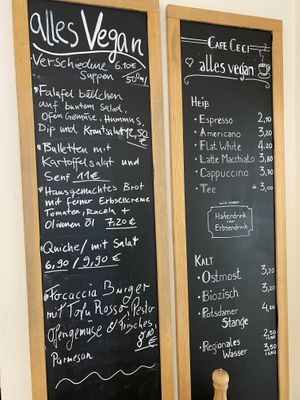 alles Vegan
Verschiedene 6.10€
Suppen 500ml
• Falafel bällchen
auf buntem Salat,
Ofengemüse, Hummus,
Dip und Krautsalat 12,50€
• Bulletten mit
Kartoffelsalat und
Senf 11€
• Hausgemachtes Brot
mit feiner Erbsencreme
Tomaten, Rucola +
Oliven öl 7,20€
• Quiche/mit Salat
6,90/9,90€
• Focaccia Burger
mit Tofu Rosso, Pesto
Ofengemüse &
Parmesan
CAFE CECI
alles vegan
HEIß
• Espresso 2,10
• Americano 3,20
• Flat White 4,20
• Latte Macchiato 3,80
• Cappuccino 3,70
• Tee 3,00
Haferdrink
Erbsendrink
KALT
• Ostmost 3,20
• Biozisch 3,20
• Potsdamer 4,20
Stange
• Regionales 2,50
Wasser 3,50